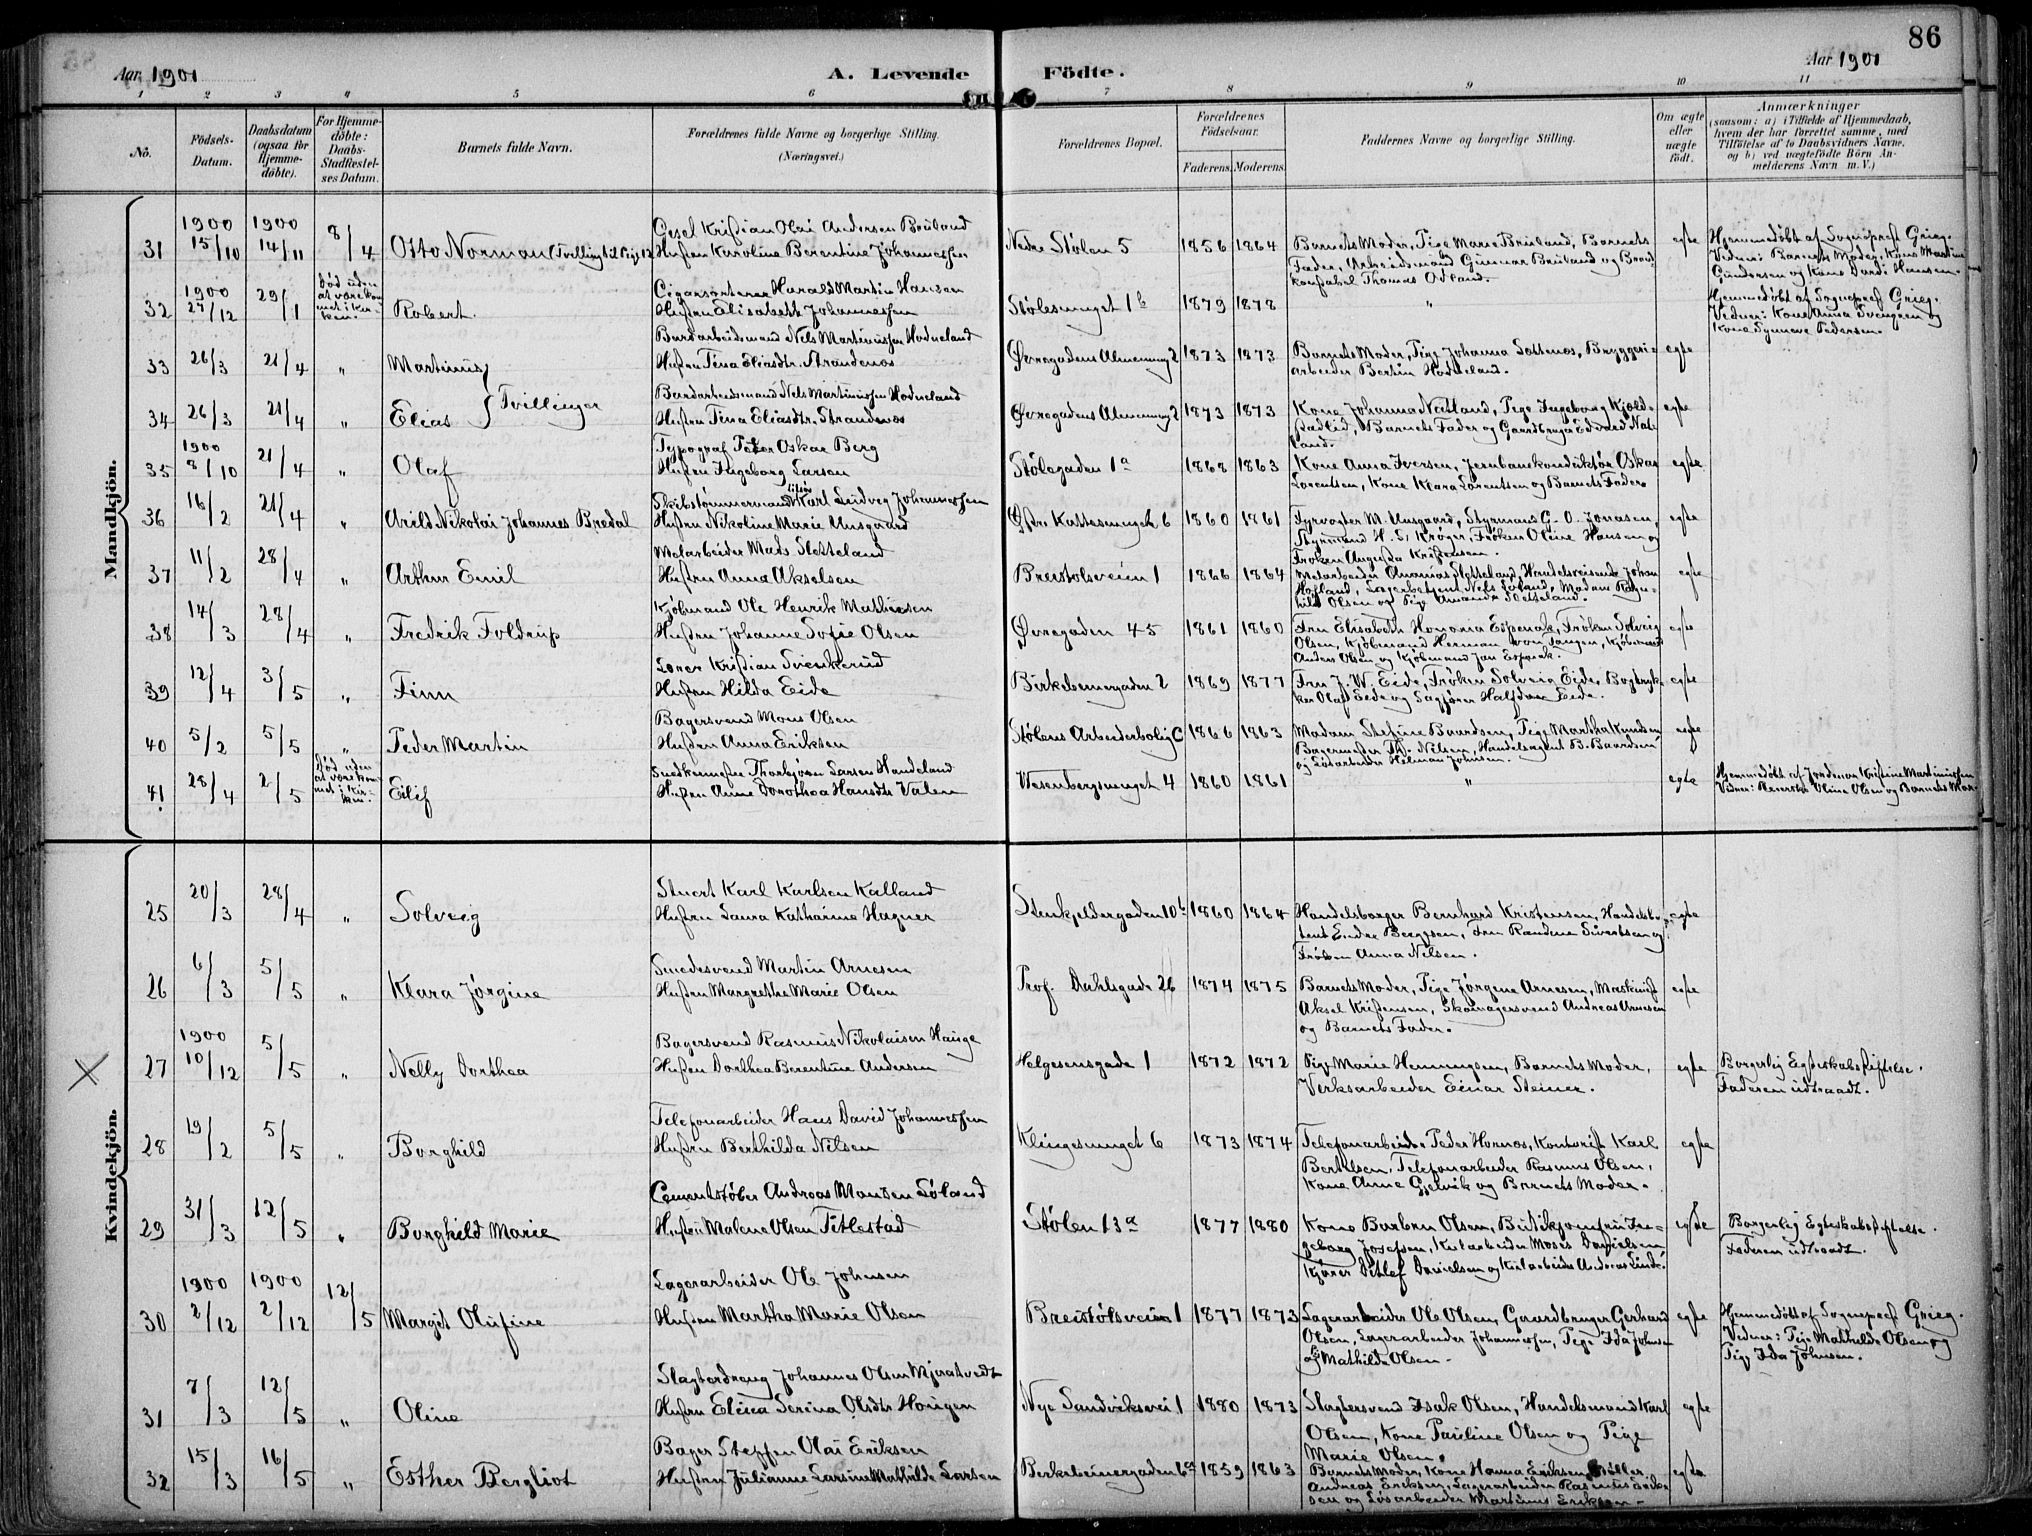 86
Aar 1901
A. Levende Födte.
Aar 1901
1 2 3 4 5 6 7 8 9 10 11
No.
Födsels-Datum.
Daabsdatum (ogsaa for Hjemme-döbte).
For Hjemme-döbte: Daabs-Stadfæstel-ses Datum.
Barnets fulde Navn.
Forældrenes fulde Navne og borgerlige Stilling. (Næringsvei.)
Forældrenes Bopæl.
Forældrenes Födselsaar.
Faderens. Moderens.
Faddernes Navne og borgerlige Stilling.
Om ægte eller uægte födt.
Anmærkninger
(saasom: a) i Tilfælde af Hjemmedaab, hvem der har forrettet samme, med Tilföielse af to Daabsvidners Navne, og b) ved uægtefödte Börn An-melderens Navn m. V.)
Mandkjön.
31 1900 15/10 1900 14/11 8/4 Otto Norman (Tvilling til Pige 12
Kristian Olai Andersen Bruland
Hustru Karoline Berentine Johannessen
Nedre Stølen 5 1856 1864 Barnets Moder, Pige Marie Bruland, Barnets
Fader, Arbeidsmand Gunnar Bruland og
Thomas Osland.
egte Hjemmedøbt af Sognepræst Grieg.
Vidner: Barnets Moder, Kone Martine
Gundersen og Kone Hansen.
32 1900 27/12 29/1 død uden at være kommet i kirken. Robert.
Cigarsorterer Harald Martin Hansen
Hustru Elisabeth Johannessen
Stølesmuget 1b 1879 1878 "
Hjemmedøbt af Sognepræst Grieg.
Vidner: Kone Anna Svendsen og
Kone Synnøve Pedersen.
33 26/3 21/4 " Martinus } Tvillinger
Nels Martinussen Hodneland
Hustru Tina Eliasdtr. Strandenos
Øvregadens Almenning 2 1873 1873 Barnets Moder, Pige Johanna Sottenos, Bryggeri-
arbeider Bertin Hodneland.
egte
34 26/3 21/4 " Elias
Nels Martinussen Hodneland
Hustru Tina Eliasdtr. Strandenos
Øvregadens Almenning 2 1873 1873 Kone Johanna Natland, Pige Ingeborg
Barnets Fader og Gaardbruger Edvard Nat-
land.
egte
35 1900 8/10 21/4 " Olaf
Typograf Peter Oskar Berg
Hustru Ingeborg Larsen
Stølegaden 1a 1868 1863 Kone Anna Iversen, Jernbanekonduktør Oskar
Lorentsen, Kone Klara Lorentsen og Barnets Fader.
egte
36 16/2 21/4 " Arild Nikolai Johannes Bredal
Skibstømmermand Karl Ludvig Johannessen
Hustru Nikoline Marie Unsgaard
Østre Kattesmuget 6 1860 1861 Fyrvogter M. Unsgaard, Styrmand G. O. Jonasen,
Styrmand H. S. Krøger, Frøken Oline Hansen og
Frøken Augusta Kristensen.
egte
37 11/2 28/4 " Arthur Emil
Melarbeider Mads Sletteland
Hustru Anna Akselsen
Breistolsveien 1 1866 1864 Melarbeider Ananias Sletteland, Handelsreisende Johan
Hofland, Lagerbetjent Nels Loland, Madam Ragn-
hild Olsen og Pige Amanda Sletteland.
egte
38 14/3 28/4 " Fredrik Foldrup
Kjøbmand Ole Henrik Mathiesen
Hustru Johanne Sofie Olsen
Øvregaden 45 1861 1860 Fru Elisabeth Honoria Espenak, Frøken Solveig
Olsen, Kjøbmand Herman von Tangen, Kjøbmand
Anders Olsen og Kjøbmand Jan Espenak.
egte
39 12/4 3/5 " Finn
Kristian Svenkerud
Hustru Hilda Eide
Birkebeinergaden 2 1869 1877 Fru J. W. Eide, Frøken Solveig Eide, Bogtryk-
ker Olaf Eide og Sagfører Halfdan Eide.
egte
40 5/2 5/5 " Peder Martin
Bagersvend Mons Olsen
Hustru Anna Eriksen
Stølens Arbeiderbolig C 1866 1863 Madam Stefine Baardsen, Pige Martha Knudsen,
Bagermester Th. Nilsen, Handelsagent B. Baardsen
og Løsarbeider Helman Johnsen.
egte
41 28/4 2/5 død uden at være kommet i kirken. Eilif
Snedkermester Thorbjørn Larsen Handeland
Hustru Anne Dorothea Hansdtr Valen
Wesenbergsmuget 4 1860 1861 "
egte Hjemmedøbt af Jordemor Kristine Martinussen
Vidner: Oline Olsen og Barnets Mor.
Kvindekjön.
25 20/3 28/4 " Solveig
Stuert Karl Karlsen Kalland
Hustru Laura Katharina Hagner
Stenkjeldergaden 10b 1860 1864 Handelsborger Bernhard Kristensen,
Endre Berggsen, Fru Randine Sivertsen og
Frøken Anna Nilsen.
egte
26 6/3 5/5 " Klara Jørgine
Smedesvend Martin Arnesen
Hustru Margrethe Marie Olsen
Prof. Dahlsgade 26 1874 1875 Barnets Moder, Pige Jørgine Arnesen, Maskinist
Aksel Kristensen, Skomagersvend Andreas Arnesen
og Barnets Fader.
egte
27 1900 10/12 5/5 " Nelly Dorthea
Bagersvend Rasmus Nikolaisen Hauge
Hustru Dorthea Berentine Andersen
Helgesensgade 1 1872 1872 Pige Marie Henningsen, Barnets Moder,
Verksarbeider Einar Steiner.
egte Borgerlig Egteskabsstiftelse.
Faderen udtraadt.
28 19/2 5/5 " Borghild
Telefonarbeider Hans David Johannessen
Hustru Berthilda Nilsen
Klingesmuget 6 1873 1874 Telefonarbeider Peder Hornos, Kontorist Karl
Bertelsen, Telefonarbeider Rasmus Olsen,
Kone Anne Gjelvik og Barnets Moder.
egte
29 31/3 12/5 " Borghild Marie
Cementstøber Andreas Monsen Løland
Hustru Malene Olsen Titlestad
Stølen 13a 1877 1880 Kone Barbra Olsen, Butikjomfru In-
geborg Josefsen, Kularbeider Moses Danielsen
Kjører Ditlef Danielsen og Kularbeider Andreas Lind.
egte Borgerlig Egteskabsstiftelse.
Faderen udtraadt.
30 1900 2/12 1900 2/12 12/5 Margit Olufine
Lagerarbeider Ole Johnsen
Hustru Martha Marie Olsen
Breistølsveien 1 1877 1873 Lagerarbeider Ole Olsen, Gaardbruger Gerhard
Olsen, Lagerarbeider Johannessen, Pige Ida Johnsen
og Mathilde Olsen.
egte Hjemmedøbt af Sognepræst Grieg.
Vidner: Pige Mathilde Olsen og
Pige Ida Johnsen.
31 7/3 12/5 " Oline
Slagterdreng Johannes Olsen Mjeratvedt
Hustru Elina Serina Olsdtr Hougen
Nye Sandviksvei 1 1880 1873 Slagtersvend Isak Olsen, Handelsmand Karl
Olsen, Kone Pauline Olsen og Pige
Marie Olsen.
egte
32 15/3 16/5 " Esther Bergliot
Bager Steffen Olai Eriksen
Hustru Julianne Larsine Mathilde Larsen
Birkebeinergaden 6a 1859 1863 Barnets Moder, Kone Hanna Eriksen, Møller
Andreas Eriksen, Lagerarbeider Rasmus Erik-
sen og Løsarbeider Martinus Eriksen.
egte